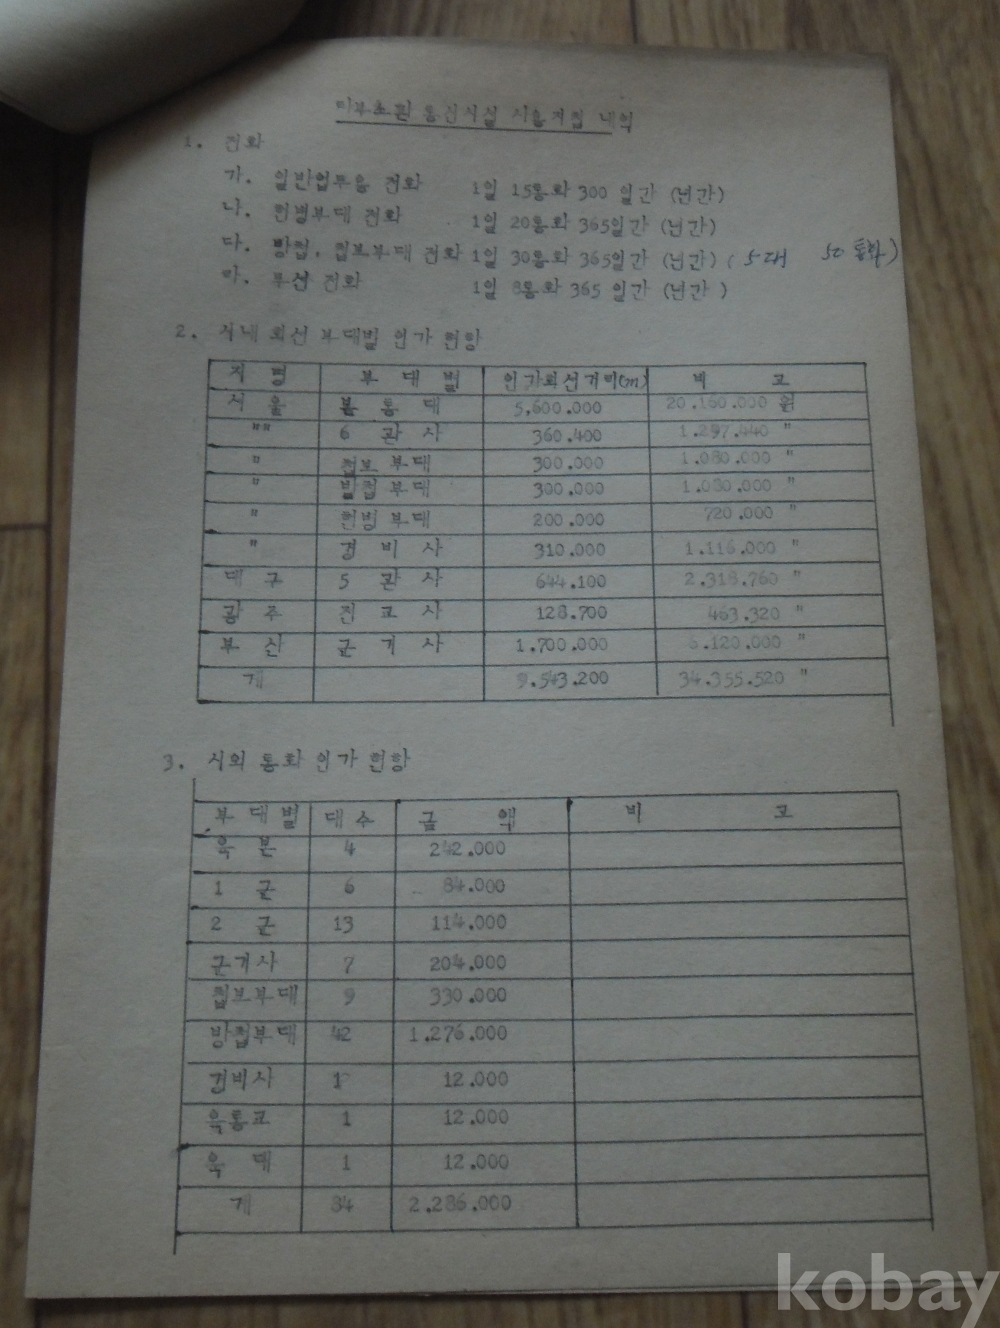 통신시설 사용지침 내역
1. 전화
가. 일반업무용 전화 1일 15통화 300 일간 (년간)
나. 헌병부대 전화 1일 20통화 365일간 (년간)
다. 방첩, 첩보부대 전화 1일 30통화 365일간 (년간) ( 5대 50통화)
마. 무선 전화 1일 8통화 365 일간 (년간 )
2. 시내 회선 부대별 인가 현황
지 명 부 대 별 인가회선거리(m) 비 고
서 울 본 통 대 5,600.000 20.160.000 원
"" 6 관 사 360.400 1.297.440 "
" 첩보 부대 300.000 1.080.000 "
" 방첩 부대 300.000 1.080.000 "
" 헌병 부대 200.000 720.000 "
" 경 비 사 310.000 1.116.000 "
대 구 5 관 사 644.100 2.318.760 "
광 주 전 교 사 128.700 463.320 "
부 산 군 기 사 1.700.000 6.120.000 "
계 9.543.200 34.355.520 "
3. 시외 통화 인가 현황
부 대 별 대 수 금 액 비 고
육 본 4 242.000
1 군 6 84.000
2 군 13 114.000
군기사 7 204.000
첩보부대 9 330.000
방첩부대 42 1.276.000
경비사 1 12.000
육통교 1 12.000
육 대 1 12.000
계 84 2.286.000
kobay